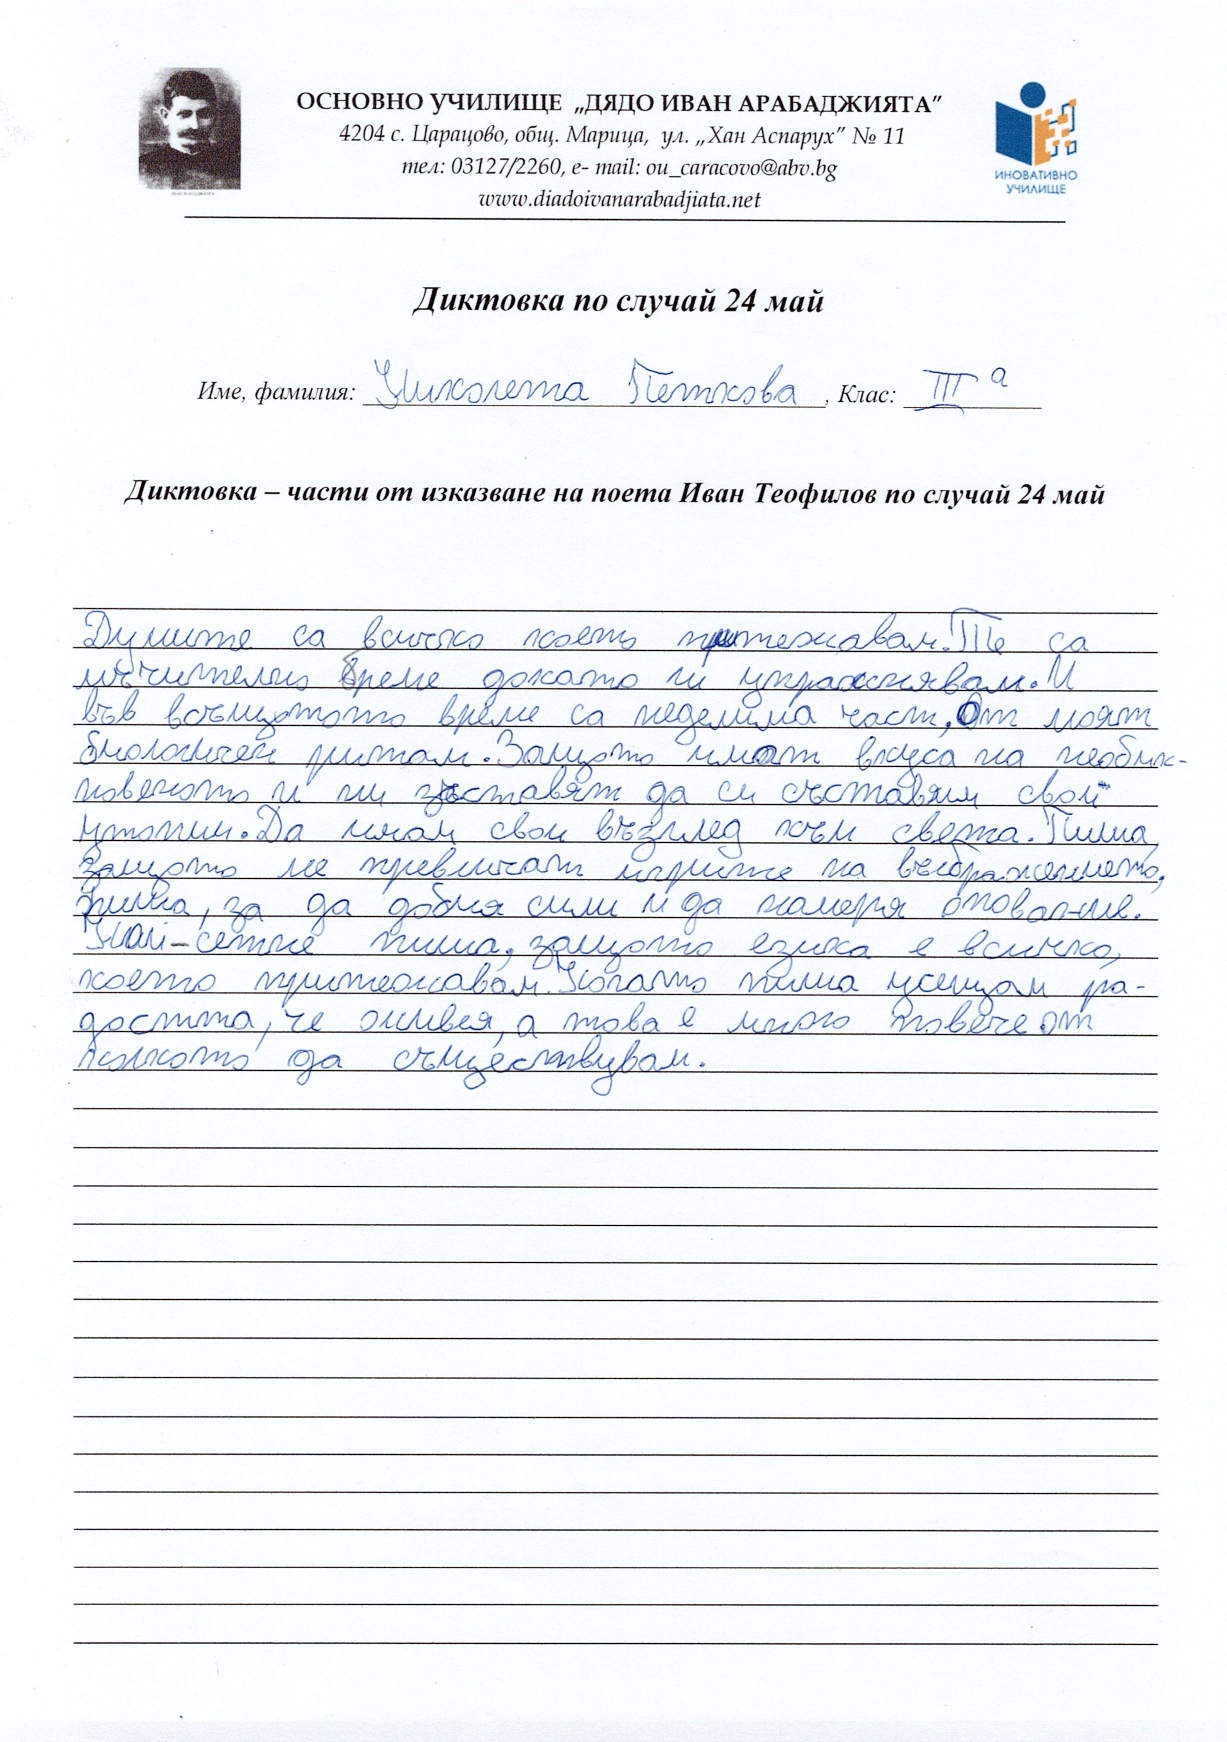 ОСНОВНО УЧИЛИЩЕ „ДЯДО ИВАН АРАБАДЖИЯТА”
4204 с. Царацово, общ. Марица, ул. „Хан Аспарух” № 11
тел: 03127/2260, е- mail: ou_caracovo@abv.bg
www.diadoivanarabadjiata.net
ИНОВАТИВНО
УЧИЛИЩЕ
Диктовка по случай 24 май
Име, фамилия: Николета Петкова, Клас: III а
Диктовка – части от изказване на поета Иван Теофилов по случай 24 май
Думите са всичко което притежавам. Те са
мъчително време докато ги упражнявам. И
във всъщотото време са неделима част, От моят
биологичен ритам. Защото имат вкуса на необик-
новеното и ми заставят да си съставям свои
утопии. Да имам свои възглед към света. Пиша
защото ме превличат игрите на въображението,
пиша, за да добия сили и да намеря опование.
Най-сетне пиша, защото езика е всичко,
което притежавам. Когато пиша усещам ра-
достта, че живея, а това е много повече от
колкото да съществувам.